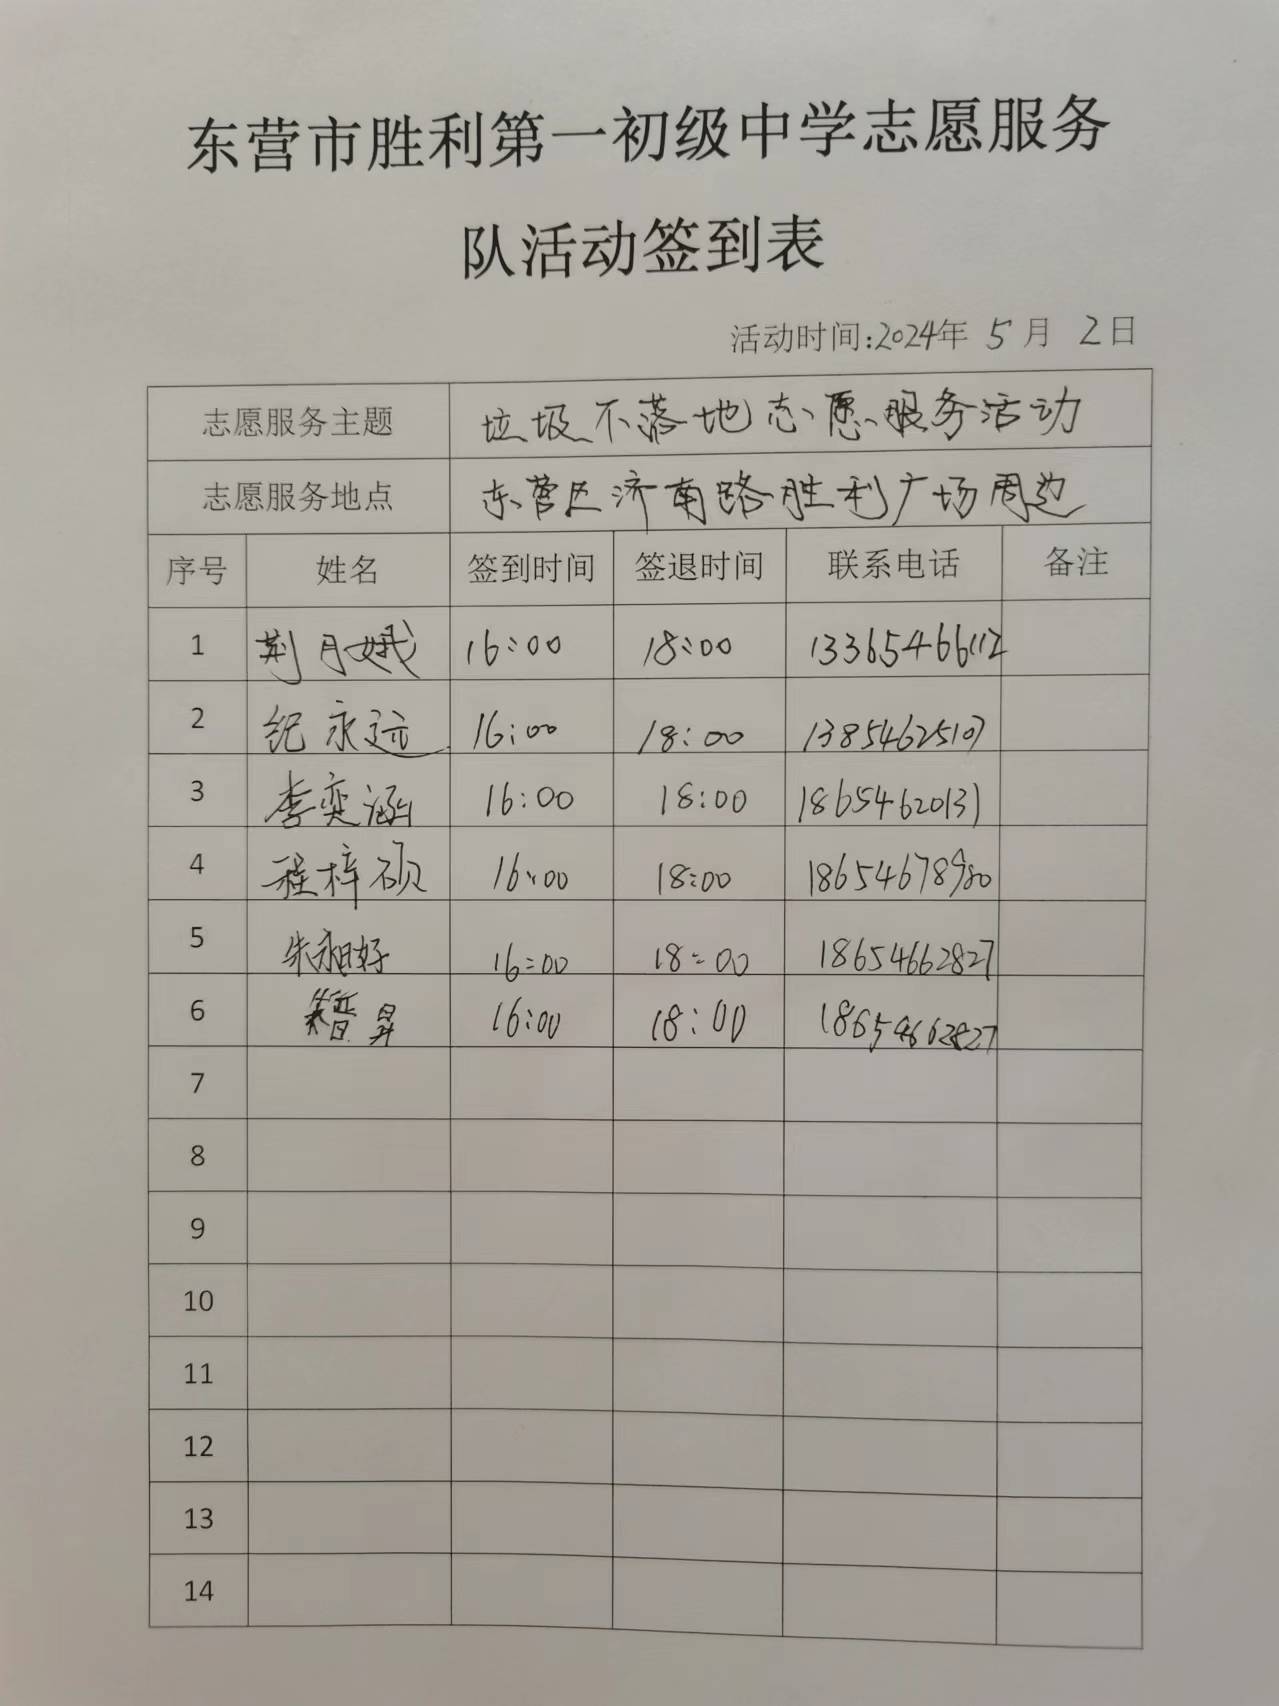 东营市胜利第一初级中学志愿服务
队活动签到表
活动时间:2024年 5 月 2日
志愿服务主题 垃圾不落地志愿服务活动
志愿服务地点 东营区济南路胜利广场周边
序号 姓名 签到时间 签退时间 联系电话 备注
1 荆月娥 16:00 18:00 13365466112
2 纪永远 16:00 18:00 13854625107
3 李奕涵 16:00 18:00 18654620131
4 程梓硕 16:00 18:00 18654678980
5 16:00 18:00 18654662827
6 16:00 18:00 18654662827
7
8
9
10
11
12
13
14